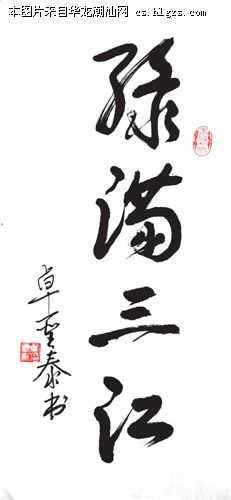 本图片来自华龙潮汕网 cs.hlgzs.com
绿满三江
卓圣泰书